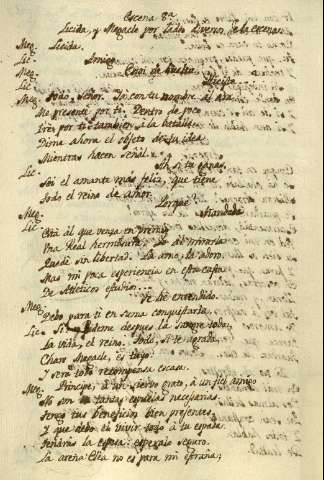 Escena 8ª
Licida, y Megacle por lados diversos de la escena.
Meg. Licida.
Lic. Amigo.
Meg. Eres de vuelta
Lic.
Meg. Todo, Señor. Ya con tu nombre al ara
Me presenté por ti. Dentro de poco
Iré por ti tambien á la batalla.
Dime ahora el objeto de tu idea
Mientras hacen señal.
Lic. Oh, si tu ganas,
Soi el amante mas feliz, que tiene
Todo el reino de amor.
Meg. Porque?
Lic. Mandada
Está al que venza en premio
Una Real hermosura. Yo al mirarla
Quedé sin libertad. La amo, la adoro.
Mas mi poca experiencia en esta
De Atleticos estudios...
Meg. Ya he entendido.
Debo para ti en suma conquistarla.
Lic. Si. Pideme despues la sangre toda,
La vida, el reino. Todo, si te agrada,
Charo Megacle, es tuyo:
Y será todo recompensa escasa.
Meg. Principe, á un siervo grato, á un fiel amigo
No son tantas espuelas necesarias.
Tengo tus beneficios bien presentes,
Y que debo el vivir todo á tu espada.
Tendrás la esposa: esperalo seguro.
La arena Elea no es para mi estraña;